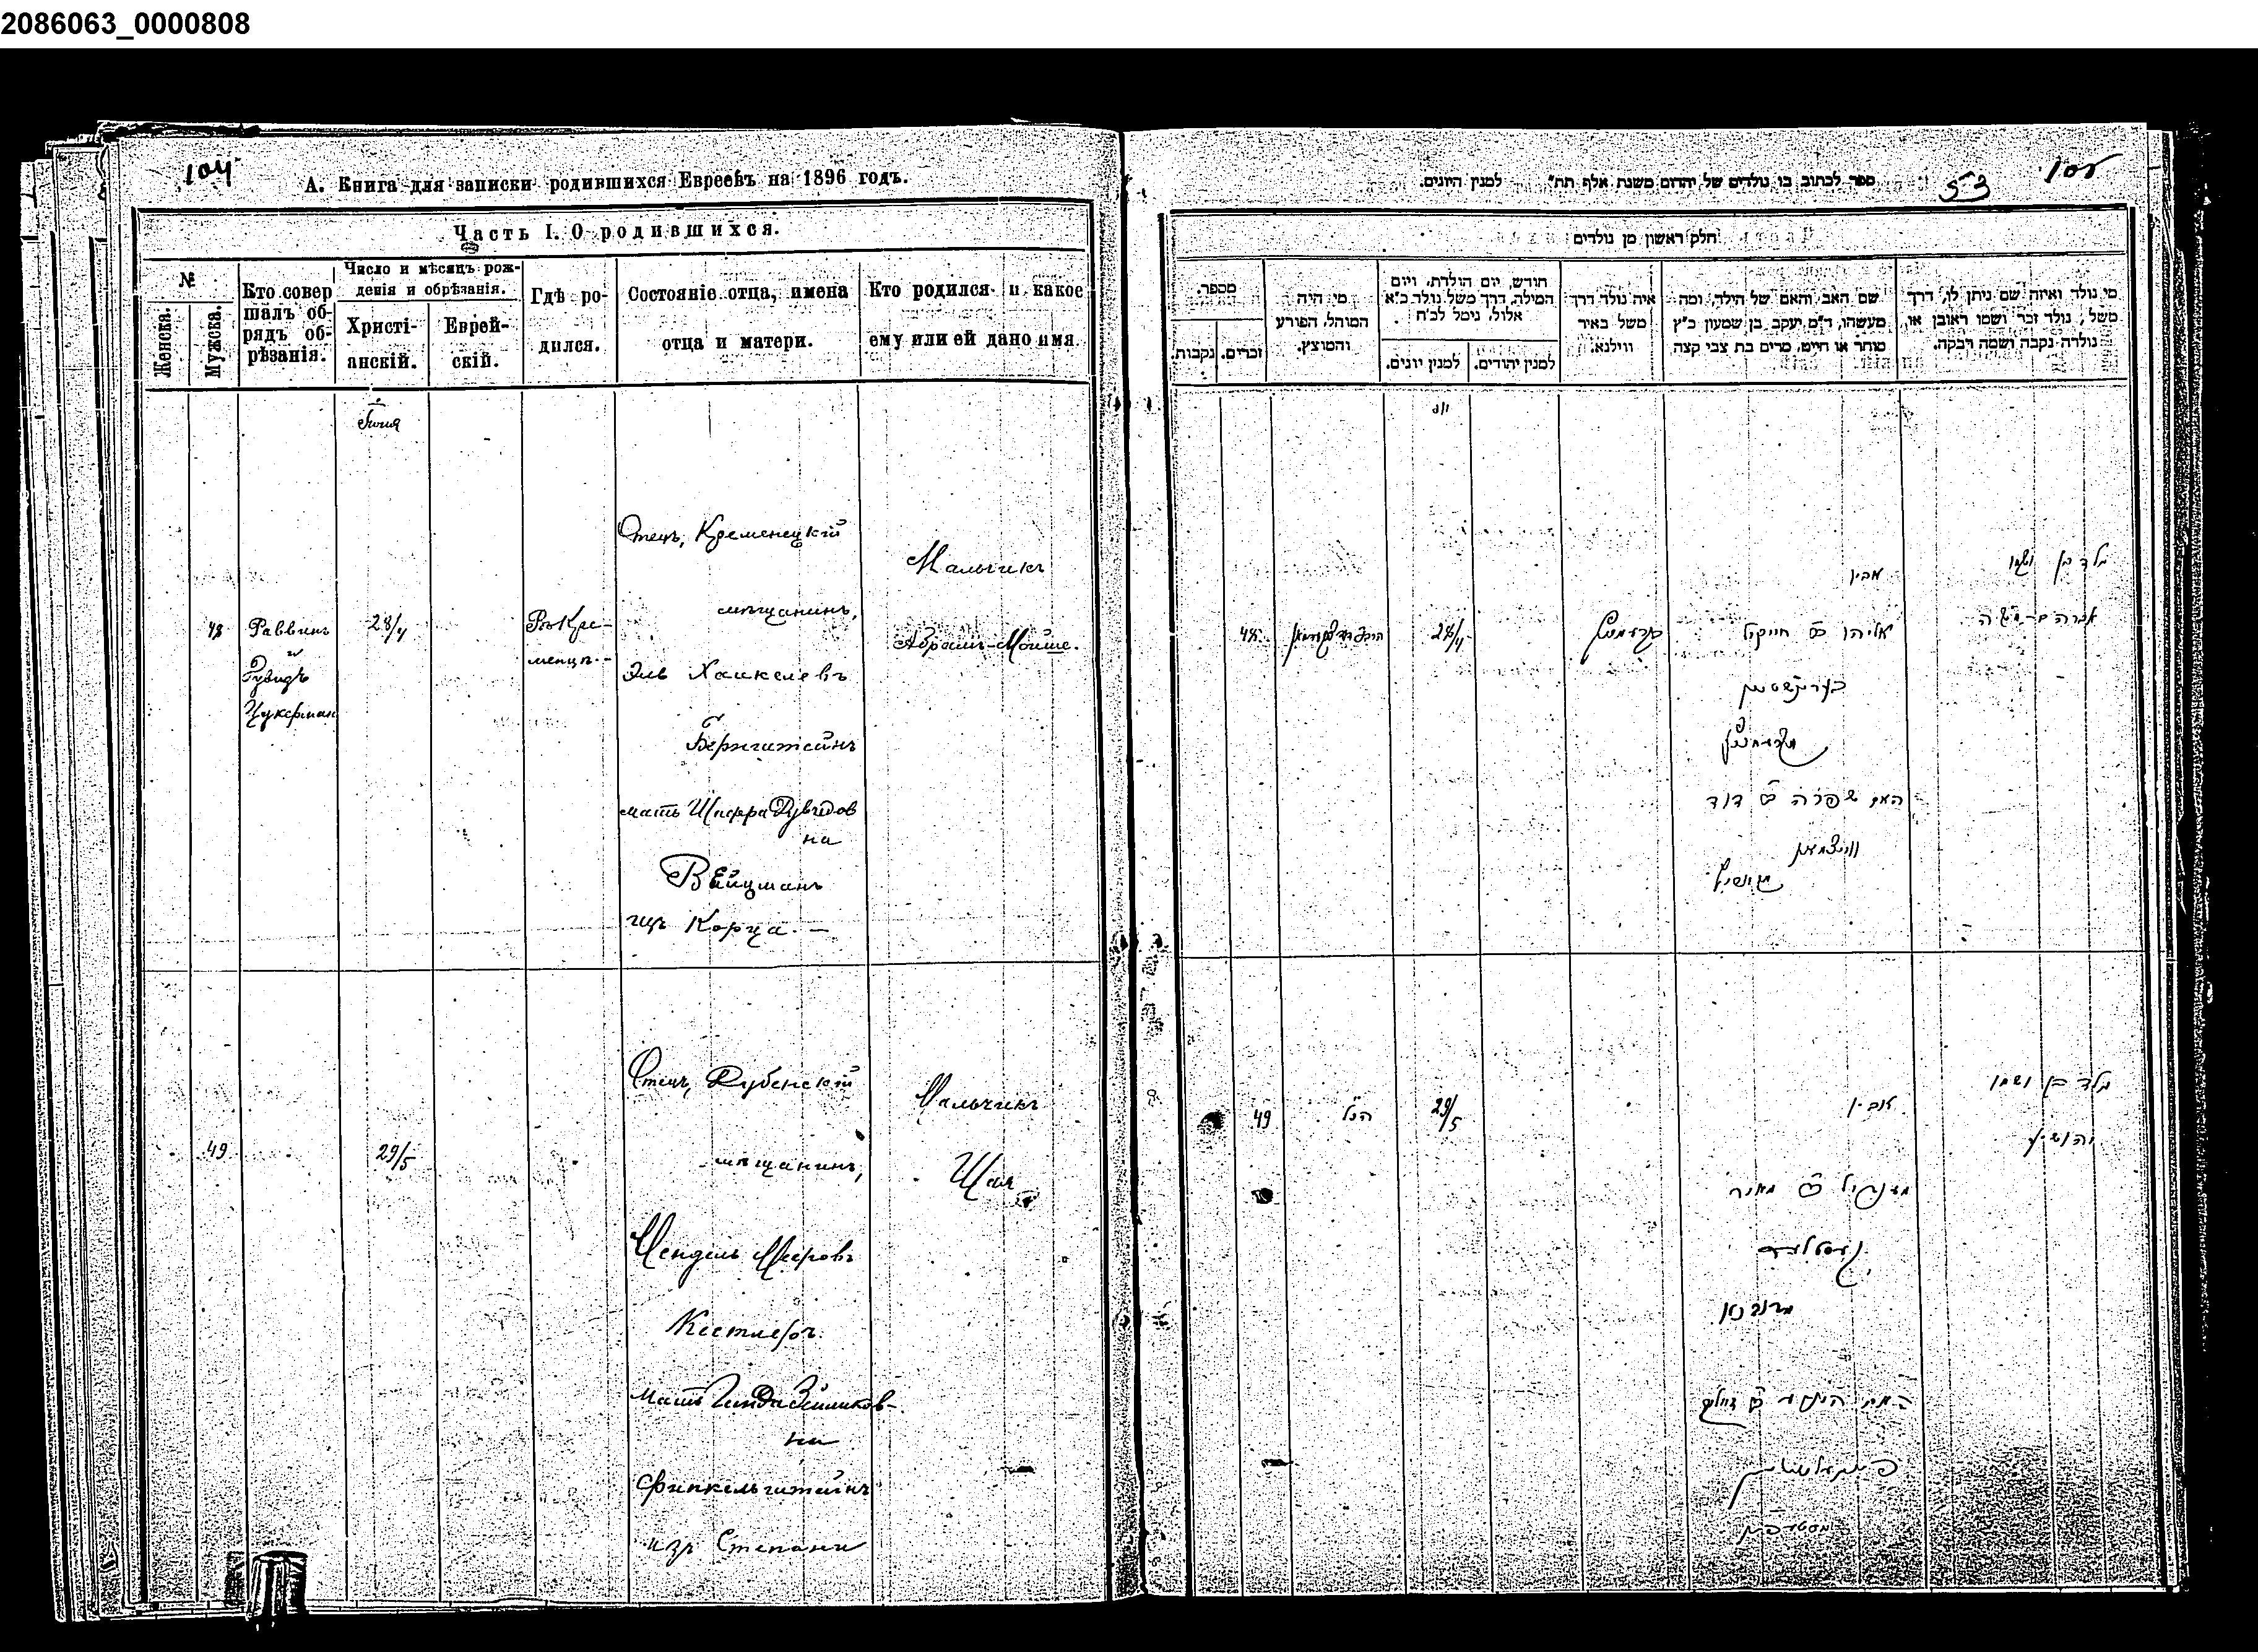 2086063_0000808
104
А. Книга для записки родившихся Евреевъ на 1896 годъ.
Часть I. О родившихся.
№
Женска.
Мужска.
Кто совер
шалъ об-
рядъ об-
рѣзанія.
Число и мѣсяцъ рож-
денія и обрѣзанія.
Христі-
анскій.
Еврей-
скій.
Гдѣ ро-
дился.
Состояніе отца, имена
отца и матери.
Кто родился и какое
ему или ей дано имя.
Іюня
48
Раввинъ
Цукерман
28/4
Кре-
менцѣ.-
Отецъ, Кременецкій
мѣщанинъ,
Эль Хаскелевъ
Бернштейнъ
мать Шифра Дувидов
на
Вейцманъ
изъ Корца. —
Мальчикъ
Абрамъ-Мойше.
49
29/5
Отецъ, Дубенскій
мѣщанинъ,
Мендель Мееровъ
Кестлеръ
мать
на
Финкельштейнъ
изъ Степани
Мальчикъ
Шая
105
53
ספר לכתוב בו נולדים של יהודים משנת אלף תת״ למנין היונים.
חלק ראשון מן נולדים
מספר.
נקבות.
זכרים.
מי היה
המוהל, הפורע
והמוצץ.
חודש, יום הולדת, ויום
המילה, דרך משל נולד כ״א
אלול, נימל לכ״ח
למנין יונים.
למנין יהודים.
איה נולד דרך
משל באיר
ווילנא.
שם האב והאם של הילד, ומה
מעשהו, ד״מ יעקב בן שמעון כ״ץ
סוחר או חייט, מרים בת צבי קצה
מי נולד ואיזה שם ניתן לו, דרך
משל, נולד זכר ושמו ראובן או,
נולדה נקבה ושמה רבקה.
48
28/4
אביו
אליהו ב״ר חייקיל
בערינשטיין
האם שפרה ב״ר דוד
ווייצמאן
נולד בן ושמו
אברהם משה
49
הנ״ל
29/5
אביו
מענדיל ב״ר מאיר
קעסטלער
מדובנא
נולד בן ושמו